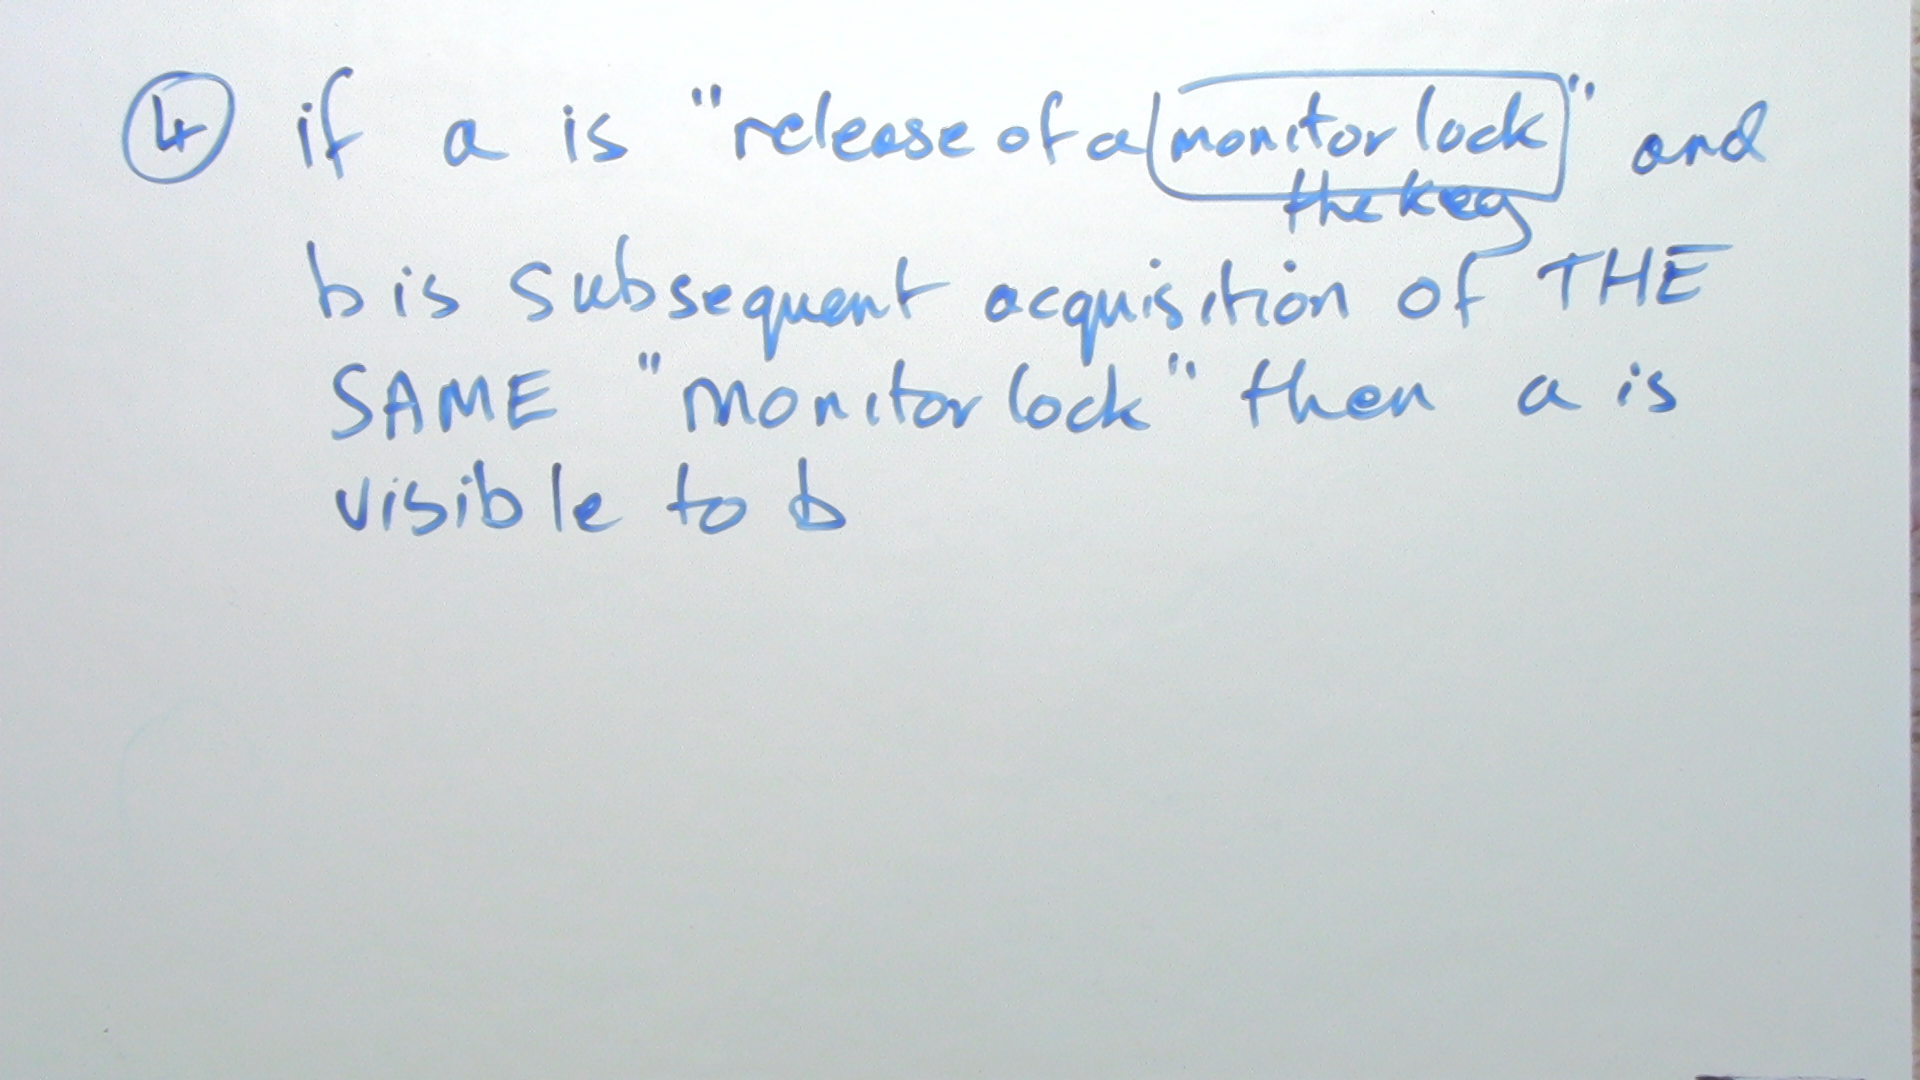 ④ if a is "release of a monitor lock" and
the key
b is subsequent acquisition of THE
SAME "monitor lock" then a is
visible to b